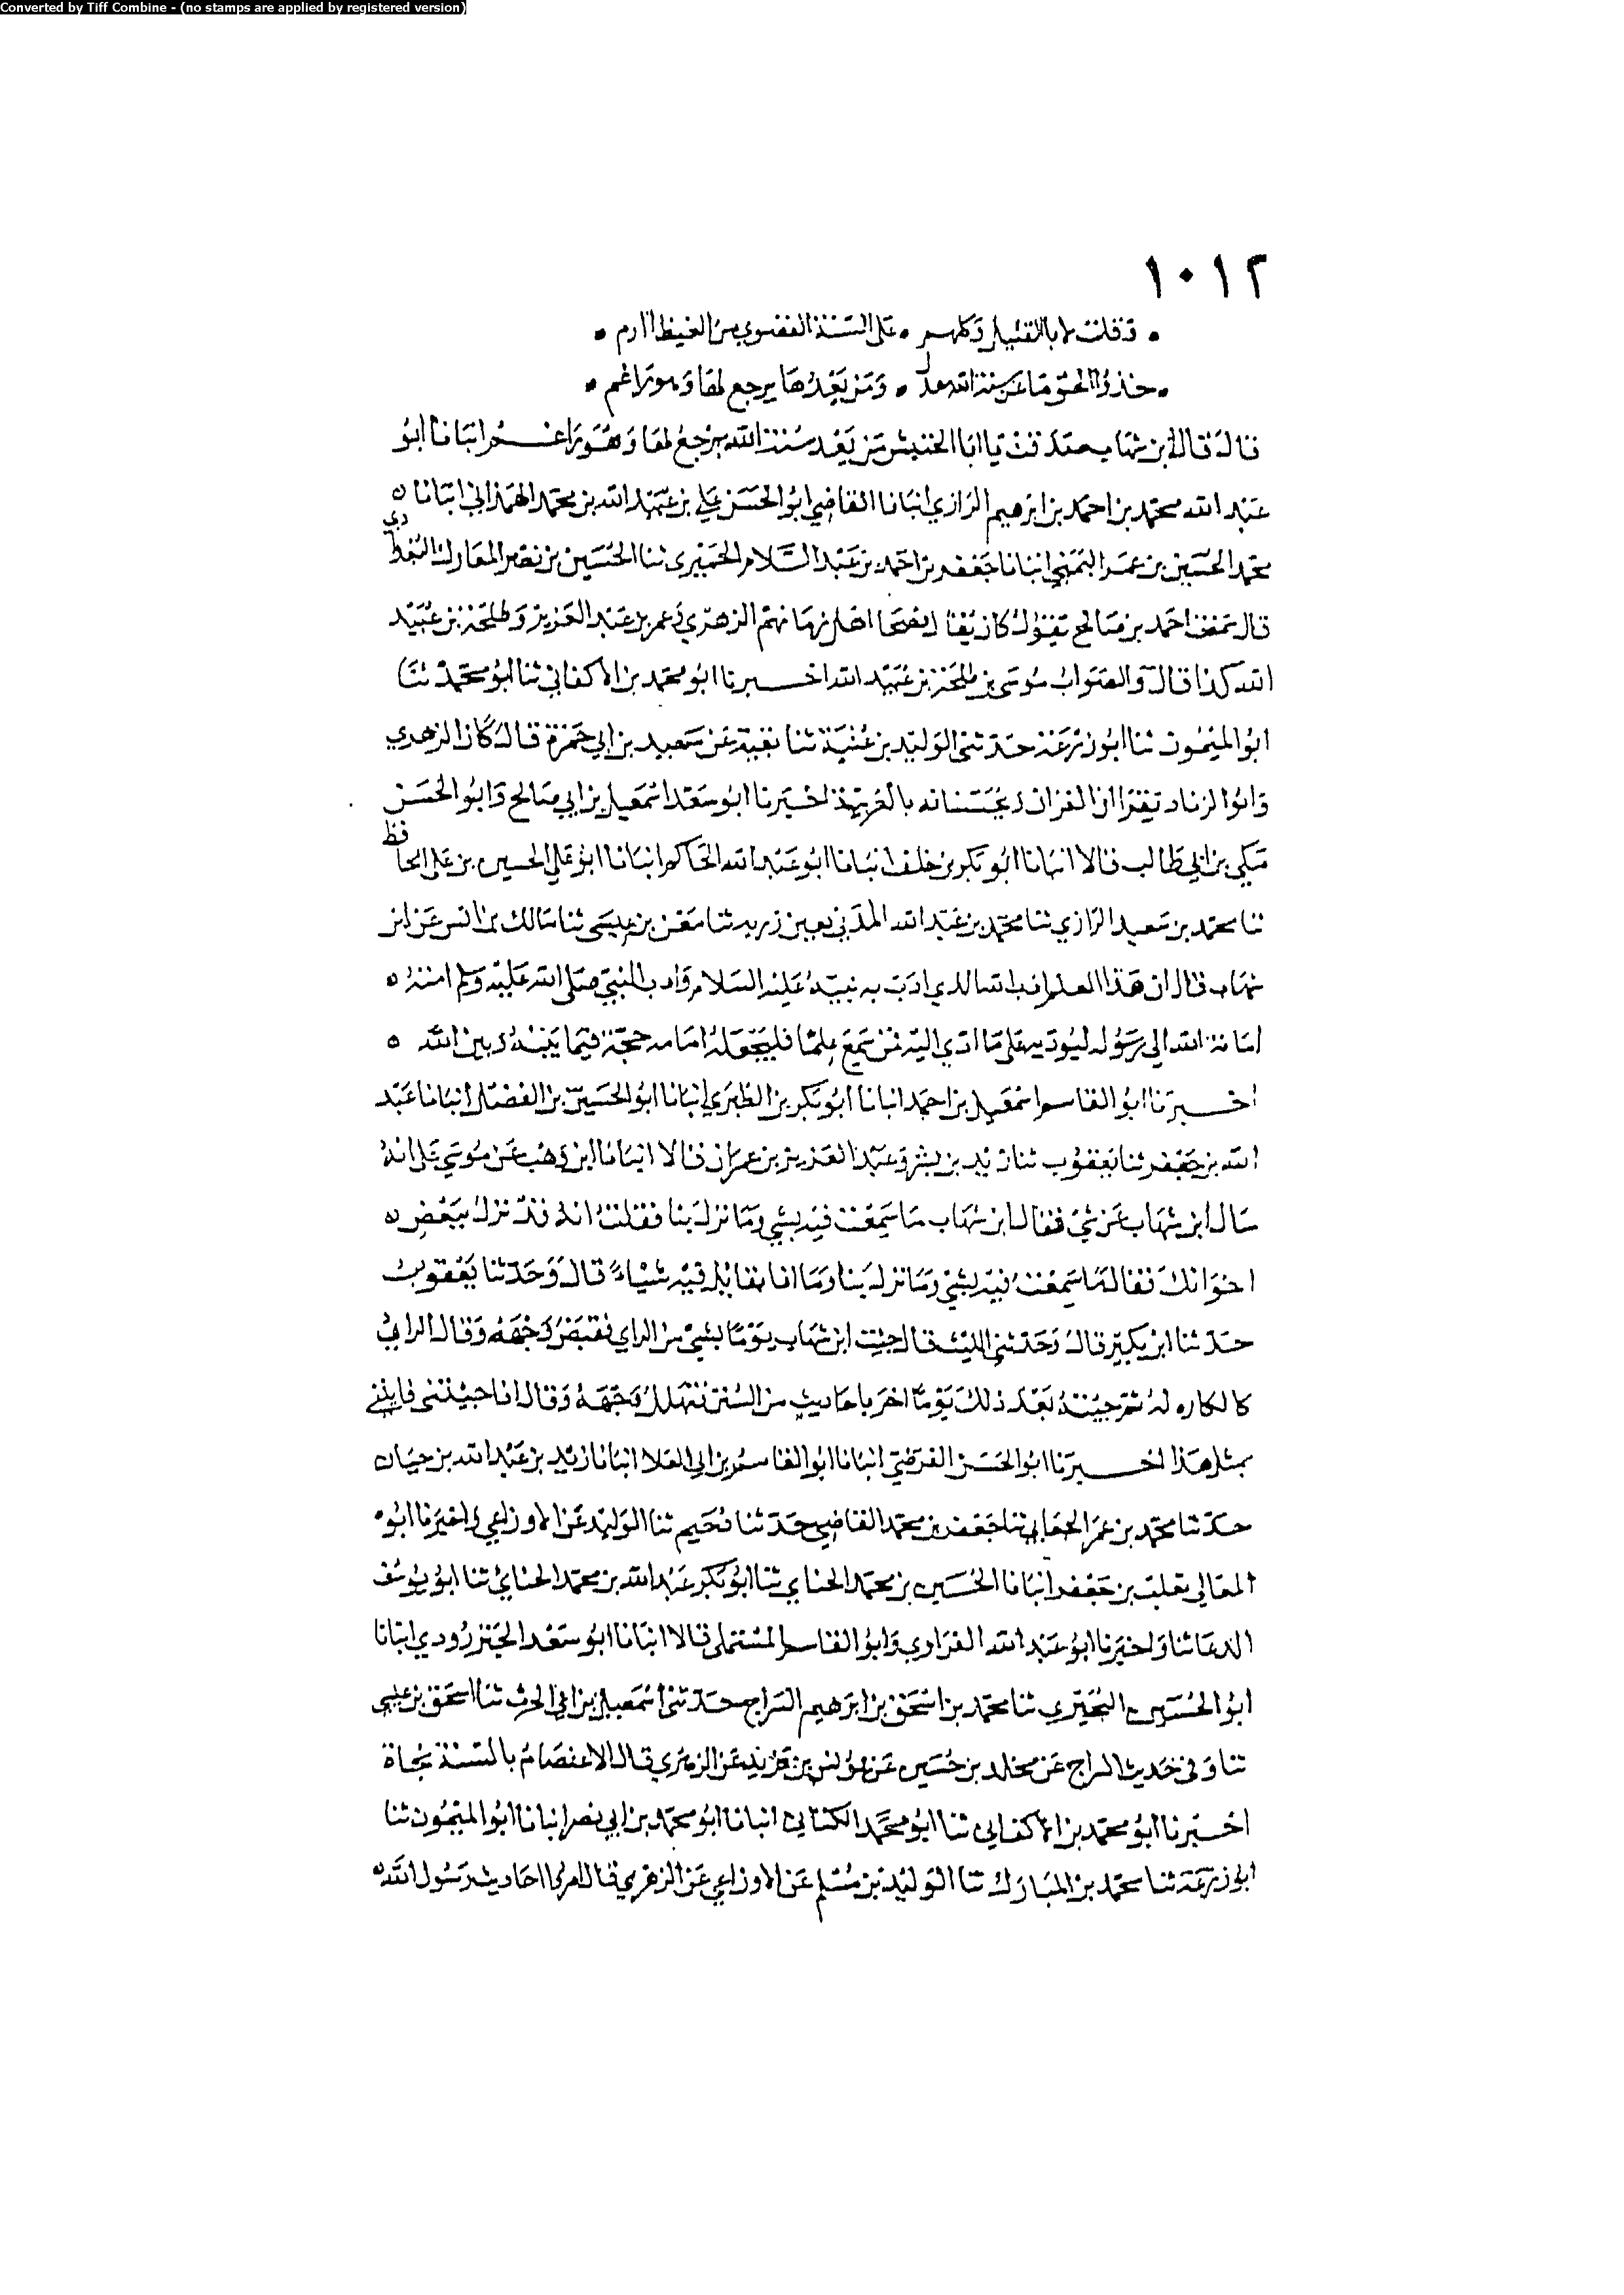 Converted by Tiff Combine - (no stamps are applied by registered version)
١٠١٢
وقلت لابا وكلهم • على السنة من الغيظ ارم •
• خذوا الحق ما عن سنة الله معدل • ومن يعدها يرجع لقا وهو راغم •
قال قال ابن شهاب صدقت يا ابا الخنيش من يعد سنة الله يرجع لقا وهو راغم انبانا ابو
عبد الله محمد بن احمد بن ابرهيم الرازي انبانا القاضي ابو الحسن علي بن عبيد الله بن محمد الهمذاني انبانا ه
محمد الحسين بن عمر اليمني انبانا جعفر بن احمد بن عبد السلام الحميري ثنا الحسين بن نصر المعارك البغدادي
قال سمعت احمد بن صالح يقول كان يقال فصحا اهل زمانهم الزهري وعمر بن عبد العزيز وطلحة بن عبيد
الله كذا قال والصواب موسى بن طلحة بن عبيد الله اخبرنا ابو محمد بن الاكفاني ثنا ابو محمد ثنا
ابو الميمون ثنا ابو زرعة حدثني الوليد بن عتبة ثنا بقية عن سعيد بن ابي حمزة قال كان الزهري
وابو الزناد يقران القران بالعربية اخبرنا ابو سعد اسمعيل بن ابي صالح وابو الحسن
مكي بن ابي طالب قالا انبانا ابو بكر بن خلف انبانا ابو عبد الله الحاكم انبانا ابو علي الحسين بن علي الحافظ
ثنا محمد بن سعيد الرازي ثنا محمد بن عبد الله المدني بعين زربه ثنا معن بن عيسى ثنا مالك بن انس عن ابن
شهاب قال ان هذا العلم ادب الله الذي ادب به نبيه عليه السلام وادب النبي صلى الله عليه وسلم امته ه
امانة الله الى رسوله ليوديه على ما ادي اليه فمن سمع علما فليجعله امامه حجة فيما بينه وبين الله ه
اخبرنا ابو القاسم اسمعيل بن احمد انبانا ابو بكر بن الطبري انبانا ابو الحسين بن الفضل انبانا عبد
الله بن جعفر ثنا يعقوب ثنا زيد بن بشر وعبد العزيز بن عمران قالا انبانا ابن وهب عن موسى بن علي انه
سال ابن شهاب عن شئ فقال ابن شهاب ما سمعت فيه بشي وما نزل بنا فقلت انه قد نزل ببعض ه
اخوانك فقال ما سمعت فيه بشئ وما نزل بنا وما انا بقايل فيه شياء قال وحدثنا يعقوب
حدثنا ابن بكير قال وحدثني الليث قال جيت ابن شهاب يوما بشئ من الراي فقبض وجهه وقال الراي
كالكاره له ثم جيته بعد ذلك يوما اخر باحاديث من السنن فتهلل وجهه وقال اذا جيتني فايتني
بمثل هذا اخبرنا ابو الحسن الفرضي انبانا ابو القاسم بن ابي العلا انبانا زيد بن عبد الله بن حيان
حدثنا محمد بن عمر الجعابي ثنا جعفر بن محمد القاضي حدثنا دحيم ثنا الوليد عن الاوزاعي واخبرنا ابو ه
المعالي ثعلب بن جعفر انبانا الحسين بن محمد الحناي ثنا ابو بكر عبد الله بن محمد الحناي ثنا ابو يوسف
الدعا ثنا واخبرنا ابو عبد الله الفراوي وابو القاسم المستملي قالا انبانا ابو سعد الجنزرودي انبانا
ابو الحسين البحيري ثنا محمد بن اسحق بن ابرهيم السراج حدثني اسمعيل بن ابي الحرث ثنا اسحق بن عيسى
ثنا وفي حديث السراج عن مخلد بن حسين عن يونس بن يزيد عن الزهري قال الاعتصام بالسنة نجاة
اخبرنا ابو محمد بن الاكفاني ثنا ابو محمد الكتاني انبانا ابو محمد بن ابي نصر انبانا ابو الميمون ثنا
ابو زرعة ثنا محمد بن المبارك ثنا الوليد بن مسلم عن الاوزاعي عن الزهري قال امروا احاديث رسول الله ه